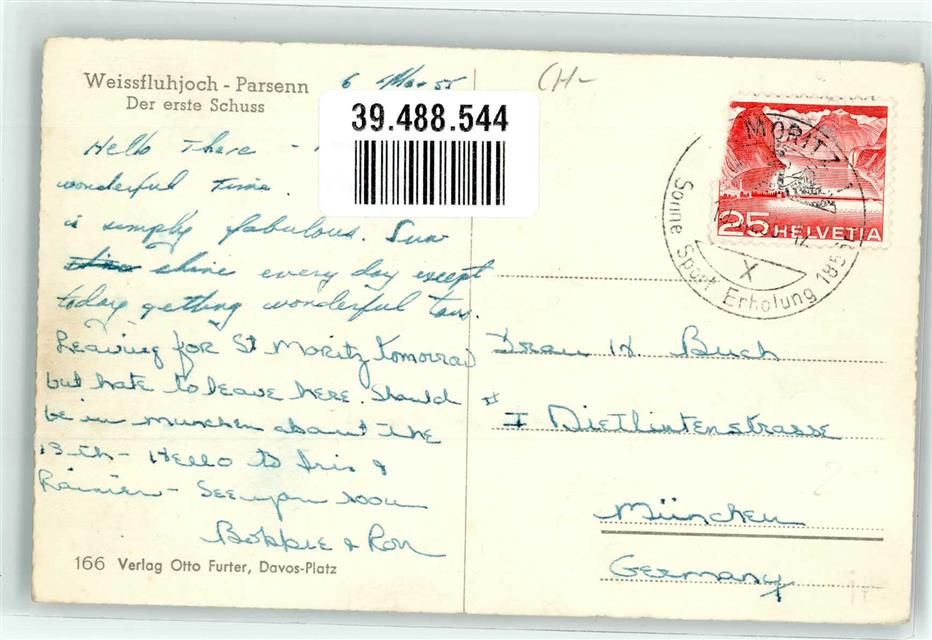 Weissfluhjoch - Parsenn
Der erste Schuss
6 Mar 55
39.488.544
CH-
Hello There -
wonderful time.
is simply fabulous. Sun
shine every day except
today getting wonderful tans.
Leaving for St Moritz tomorrow
but hate to leave here. Should
be in Munchen about the
13th - Hello to Iris &
Rainier - See you soon
Bobbie & Ron
166 Verlag Otto Furter, Davos-Platz
MORITZ
25 HELVETIA
X
Sonne Sport Erholung 1856
Frau H Buch
I Dietlintenstrasse
München
Germany